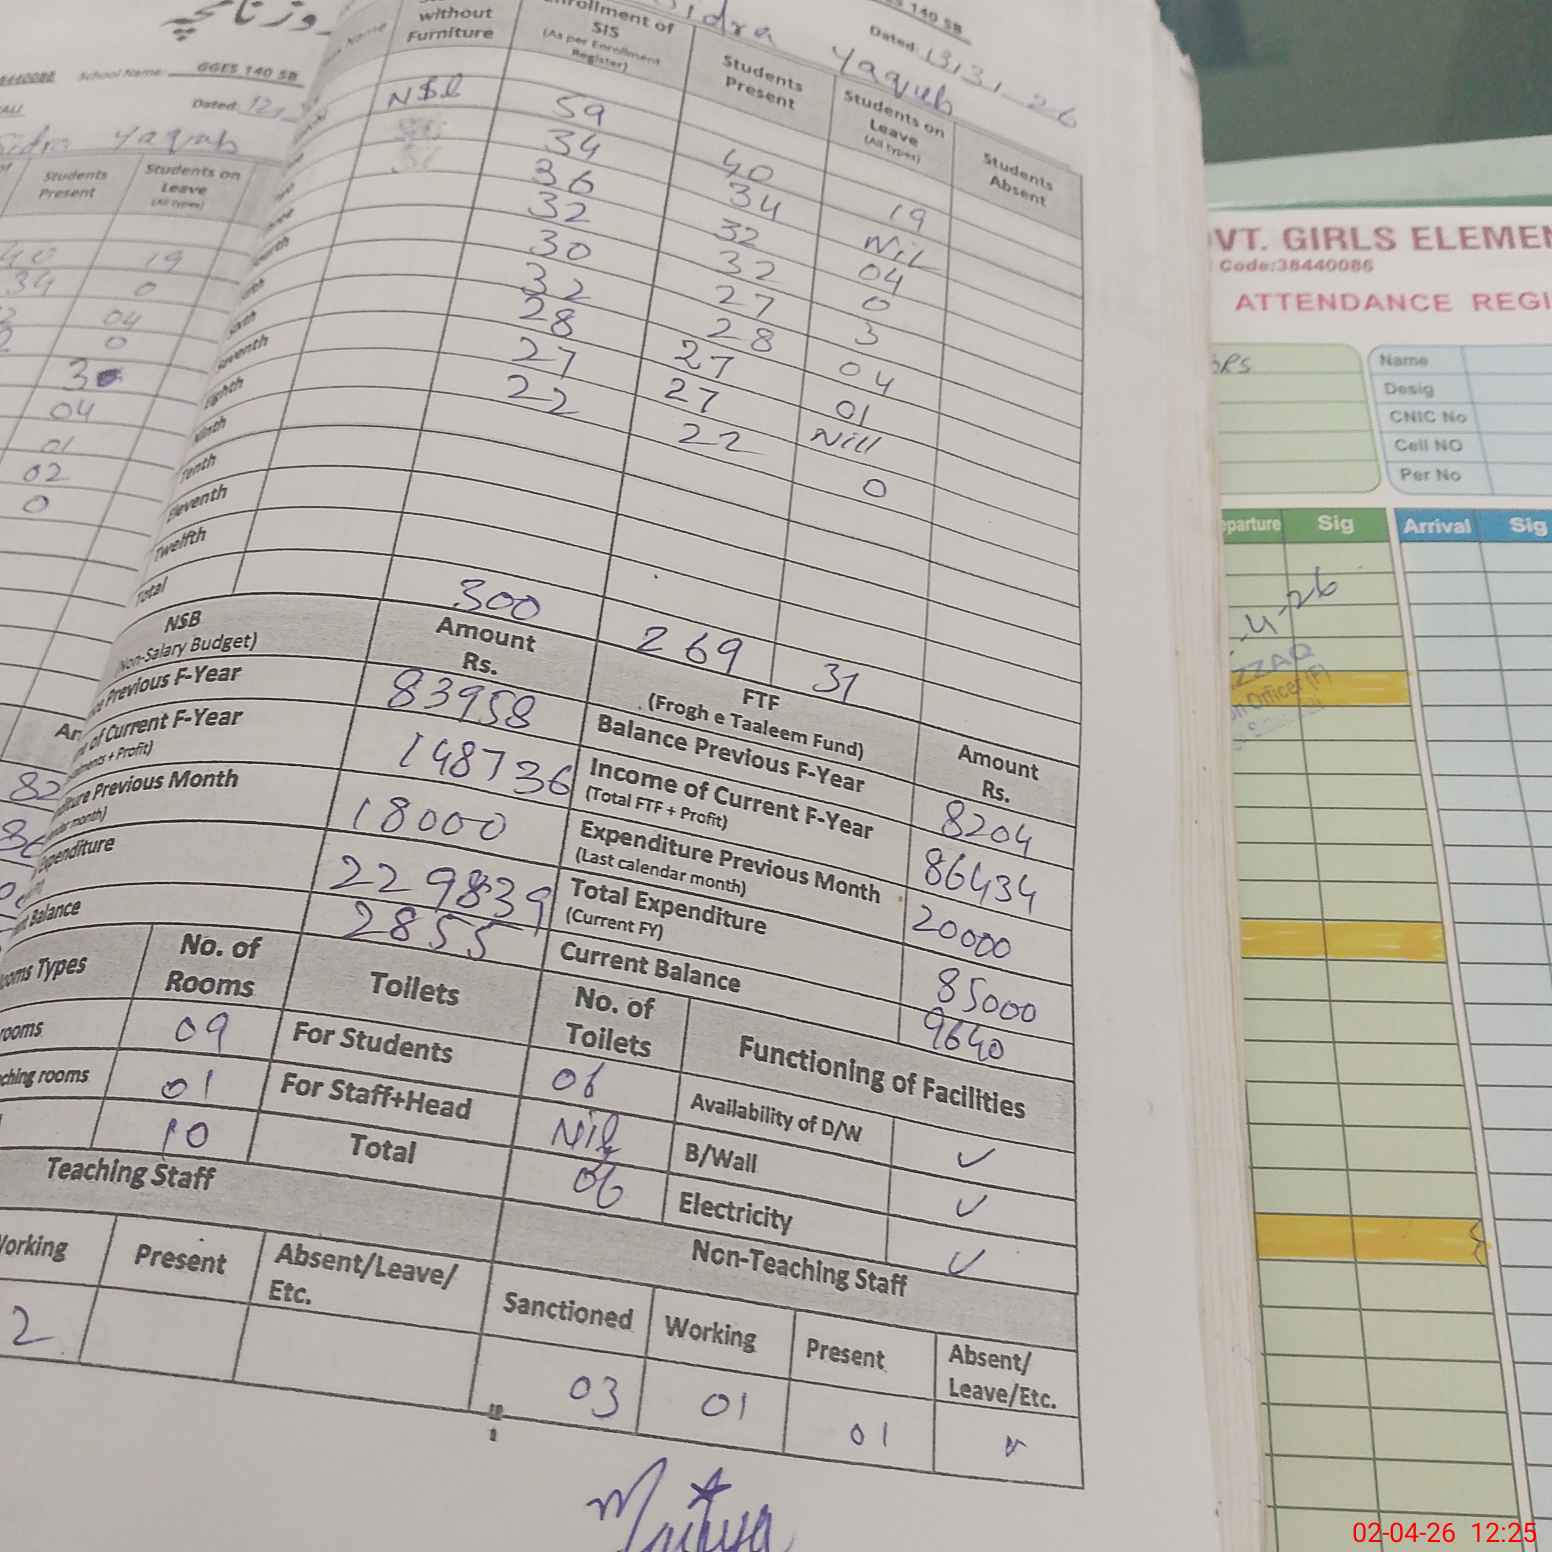 GGES 140 SB
School Name:
Dated: 12
Sidra Yaqub
Students Present
Students on Leave
(All types)
40 19
34 0
04
0
3
04
01
02
0
Sidra Yaqub
Dated: 13/3/26
without Furniture
Enrollment of SIS
(As per Enrollment Register)
Students Present
Students on Leave
(All types)
Students Absent
59 40 19
34 34 Nil
36 32 04
32 32 0
30 27 3
32 28 04
28 27 01
Seventh 27 27 Nill
Eighth 22 22 0
Ninth
Tenth
Eleventh
Twelfth
Total 300 269 31
NSB
(Non-Salary Budget)
Amount Rs.
FTF
(Frogh e Taaleem Fund)
Amount Rs.
Previous F-Year 83958 Balance Previous F-Year 8204
of Current F-Year 148736 Income of Current F-Year 86434
+ Profit) (Total FTF + Profit)
Previous Month 18000 Expenditure Previous Month 20000
month) (Last calendar month)
229839 Total Expenditure 85000
(Current FY)
Balance 2855 Current Balance 9640
Types No. of Rooms Toilets No. of Toilets Functioning of Facilities
rooms 09 For Students 06 Availability of D/W ✓
rooms 01 For Staff+Head Nil B/Wall ✓
10 Total 06 Electricity ✓
Teaching Staff Non-Teaching Staff
Working Present Absent/Leave/Etc. Sanctioned Working Present Absent/Leave/Etc.
2 03 01 01
GIRLS ELEMEN
Code:38440086
ATTENDANCE REGI
Name
Desig
CNIC No
Cell NO
Per No
Sig Arrival Sig
02-04-26 12:25